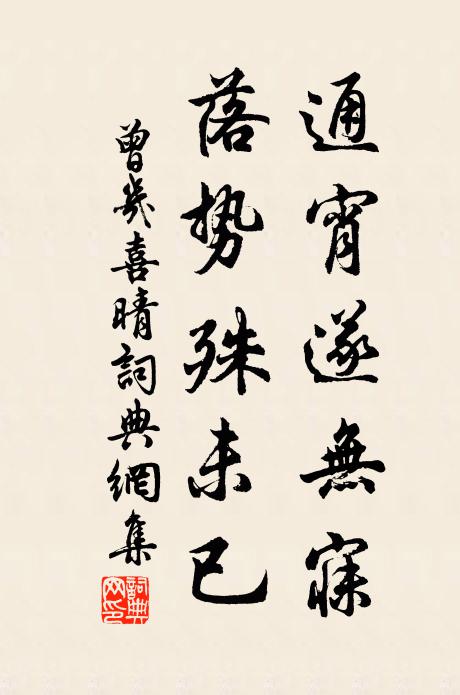 通宵遂無寐
落勢殊未已
曾幾喜晴詞典網集
詞典網印